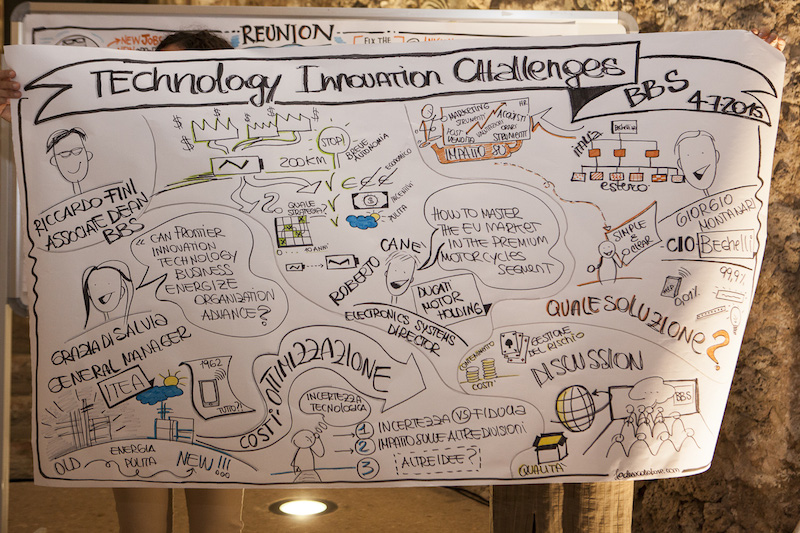 NEW JOBS
REUNION
FIX THE
TECHNOLOGY INNOVATION CHALLENGES
BBS
4-7-2015
RICCARDO FINI
ASSOCIATE DEAN
BBS
200KM
STOP!
BREVE
AUTONOMIA
ECONOMICO
INCENTIVI
PULITA
QUALE
STRATEGIA?
10 ANNI
MARKETING
STRUMENTI
POST
VENDITA
VALUTAZIONI
ACQUISTI
ORARI
STRUMENTI
HR
IMPATTO SU
Beghelli
ITALIA
ESTERO
GIORGIO
MONTANARI
CIO Beghelli
SIMPLE
E
CLEAR
"CAN FRONTIER
INNOVATION
TECHNOLOGY
BUSINESS
ENERGIZE
ORGANIZATION
ADVANCE?
HOW TO MASTER
THE EU MARKET
IN THE PREMIUM
MOTORCYCLES
SEGMENT
ROBERTO CANE'
DUCATI
MOTOR
HOLDING
ELECTRONICS SYSTEMS
DIRECTOR
GRAZIA DI SALVIA
GENERAL MANAGER
TEA
1962
TUTTO?!
OLD
ENERGIA
PULITA
NEW!!!
COSTI: OTTIMIZZAZIONE
INCERTEZZA
TECNOLOGICA
1 INCERTEZZA VS FIDUCIA
2 IMPATTO SULLE ALTRE DIVISIONI
3 ALTRE IDEE?
99,9%
0,01%
QUALE SOLUZIONE?
CONTENIMENTO
COSTI
GESTIONE
DEL RISCHIO
DISCUSSION
BBS
QUALITA'